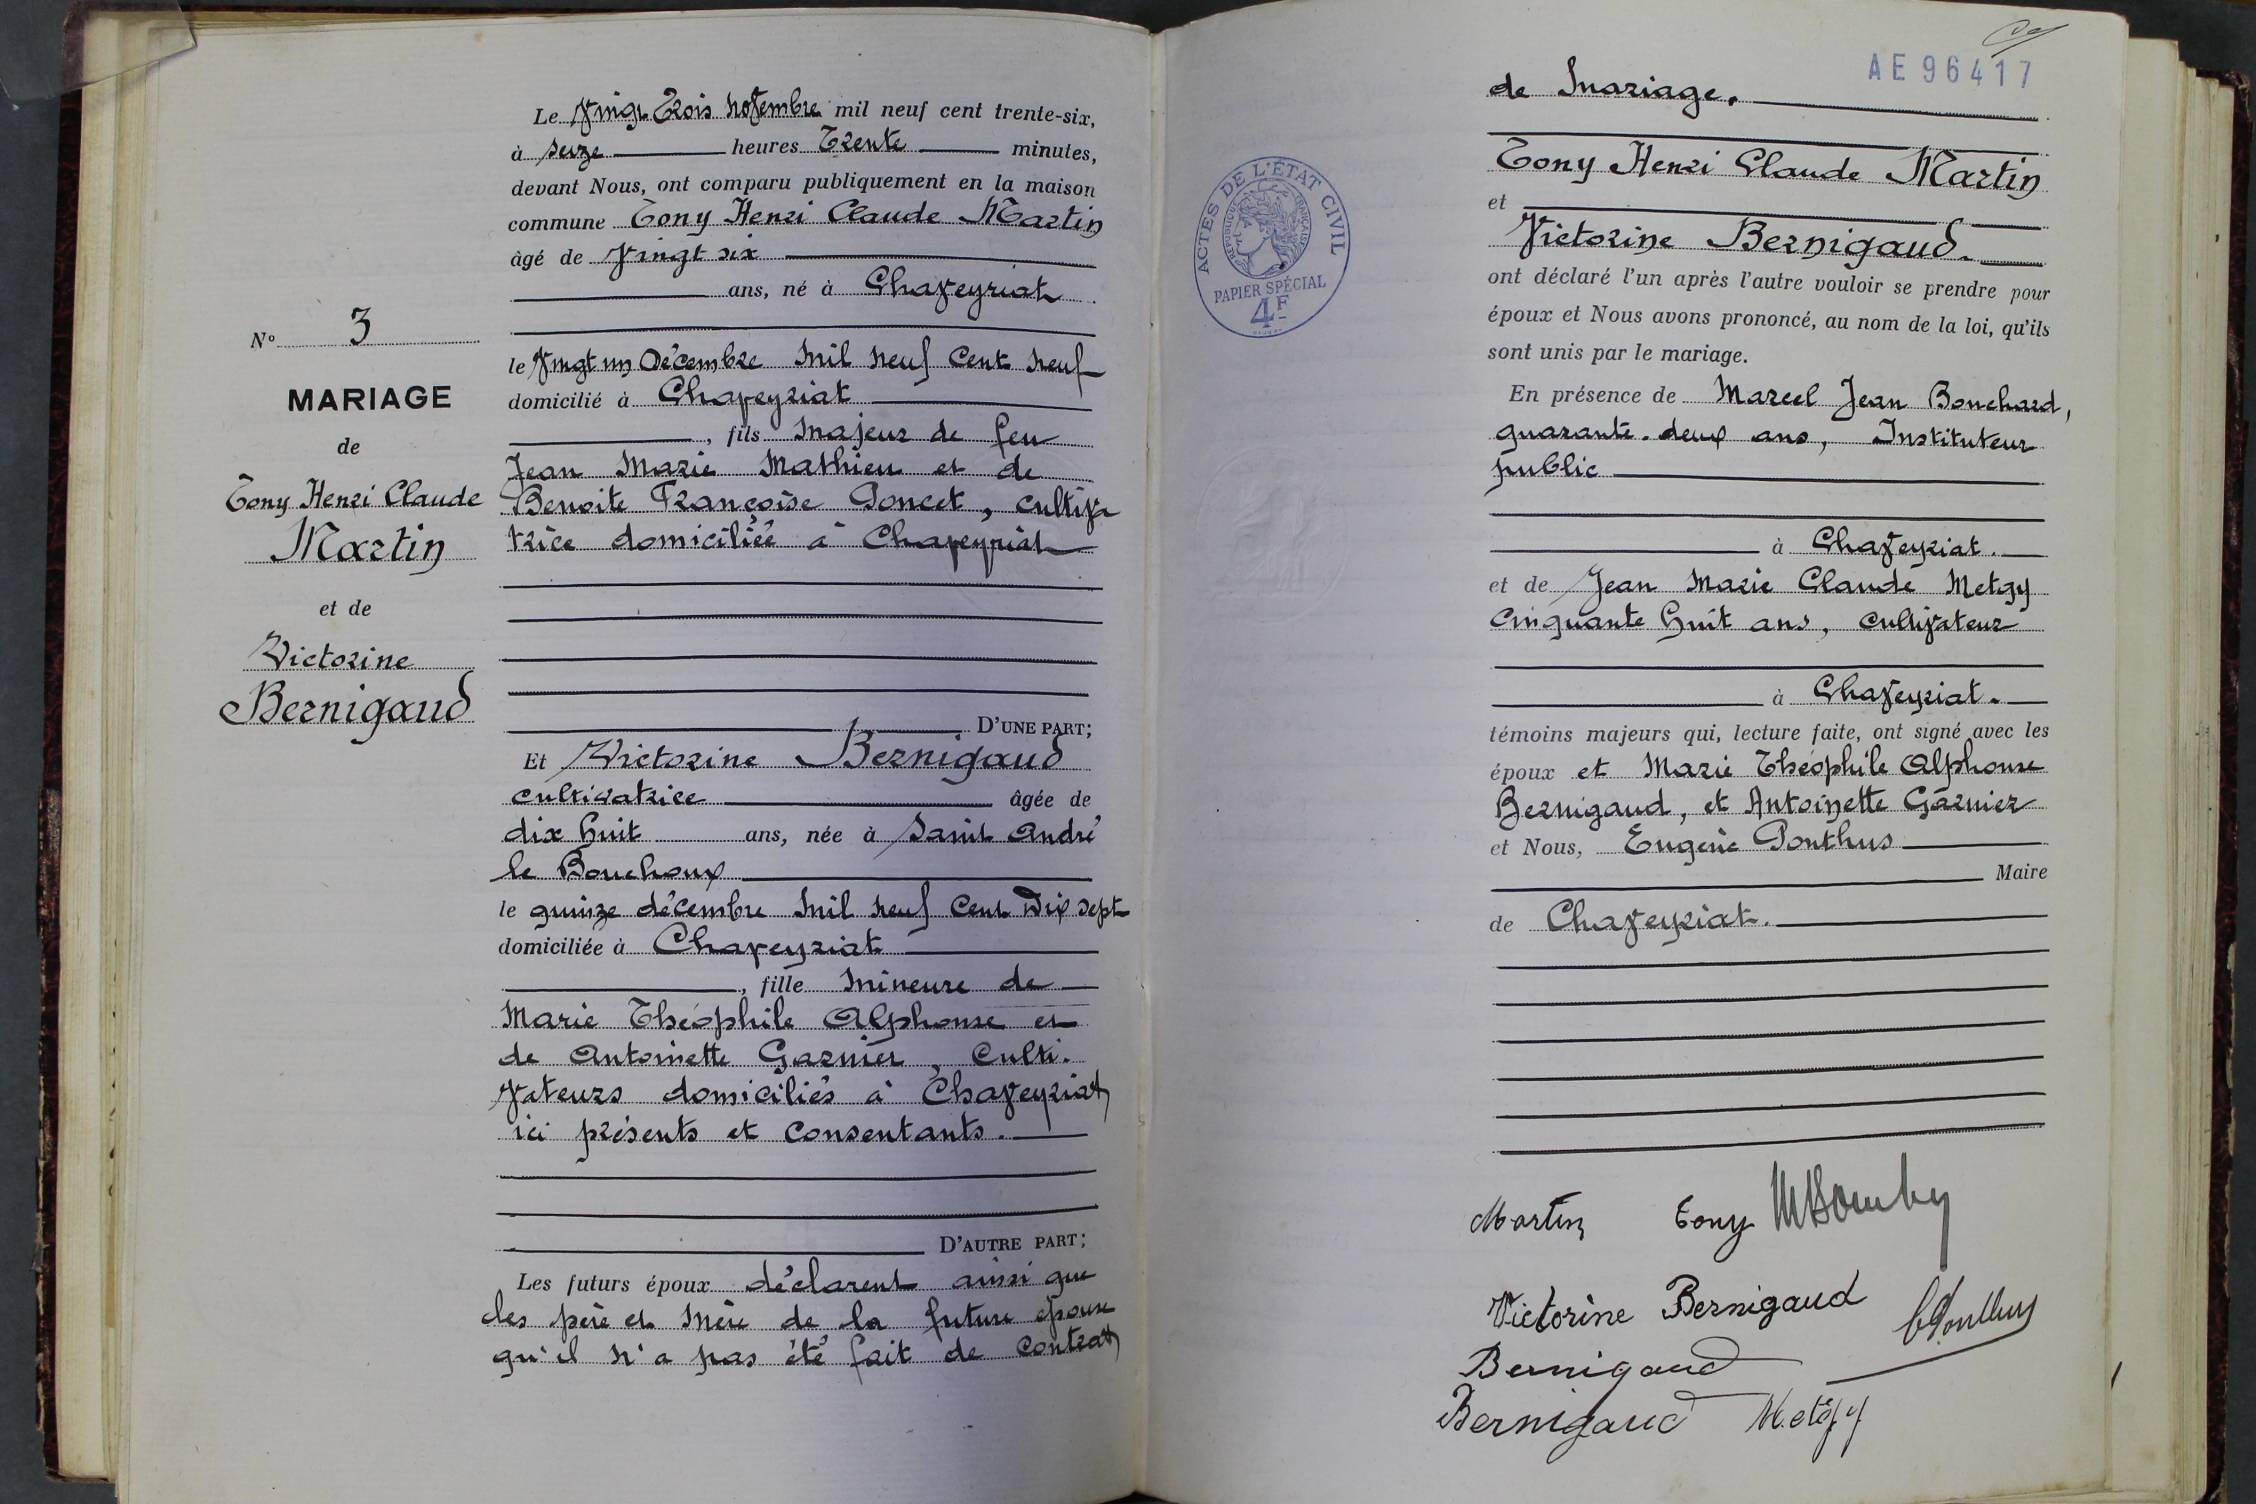 Le Vingt Trois Novembre mil neuf cent trente-six,
à seize heures Trente minutes,
devant Nous, ont comparu publiquement en la maison
commune Tony Henri Claude Martin
âgé de Vingt six
ans, né à Chaveyriat
N° 3
MARIAGE
de
Tony Henri Claude
Martin
et de
Victorine
Bernigaud
le Vingt un Décembre Mil neuf Cent neuf
domicilié à Chaveyriat
, fils Majeur de feu
Jean Marie Mathieu et de
Benoite Françoise Poncet, cultiva
trice domiciliée à Chaveyriat
D'UNE PART;
Et Victorine Bernigaud
cultivatrice âgée de
dix huit ans, née à Saint André
le Bouchoux
le quinze décembre Mil neuf Cent Dix sept
domiciliée à Chaveyriat
, fille Mineure de
Marie Théophile Alphonse et
de Antoinette Garnier, Culti-
vateurs domiciliés à Chaveyriat
ici présents et consentants.
D'AUTRE PART;
Les futurs époux déclarent ainsi que
les père et Mère de la future épouse
qu'il n'a pas été fait de Contrat
AE96417
de Mariage.
ACTES DE L'ÉTAT CIVIL
RÉPUBLIQUE FRANÇAISE
PAPIER SPÉCIAL
4F
Tony Henri Claude Martin
et
Victorine Bernigaud.
ont déclaré l'un après l'autre vouloir se prendre pour
époux et Nous avons prononcé, au nom de la loi, qu'ils
sont unis par le mariage.
En présence de Marcel Jean Bouchard,
quarante-deux ans, Instituteur
public
à Chaveyriat.
et de Jean Marie Claude Metgy
Cinquante huit ans, cultivateur
à Chaveyriat.
témoins majeurs qui, lecture faite, ont signé avec les
époux et Marie Théophile Alphonse
Bernigaud, et Antoinette Garnier
et Nous, Eugène Ponthus
Maire
de Chaveyriat.
Martin Tony
Victorine Bernigaud
Bernigaud
Bernigaud Metgy